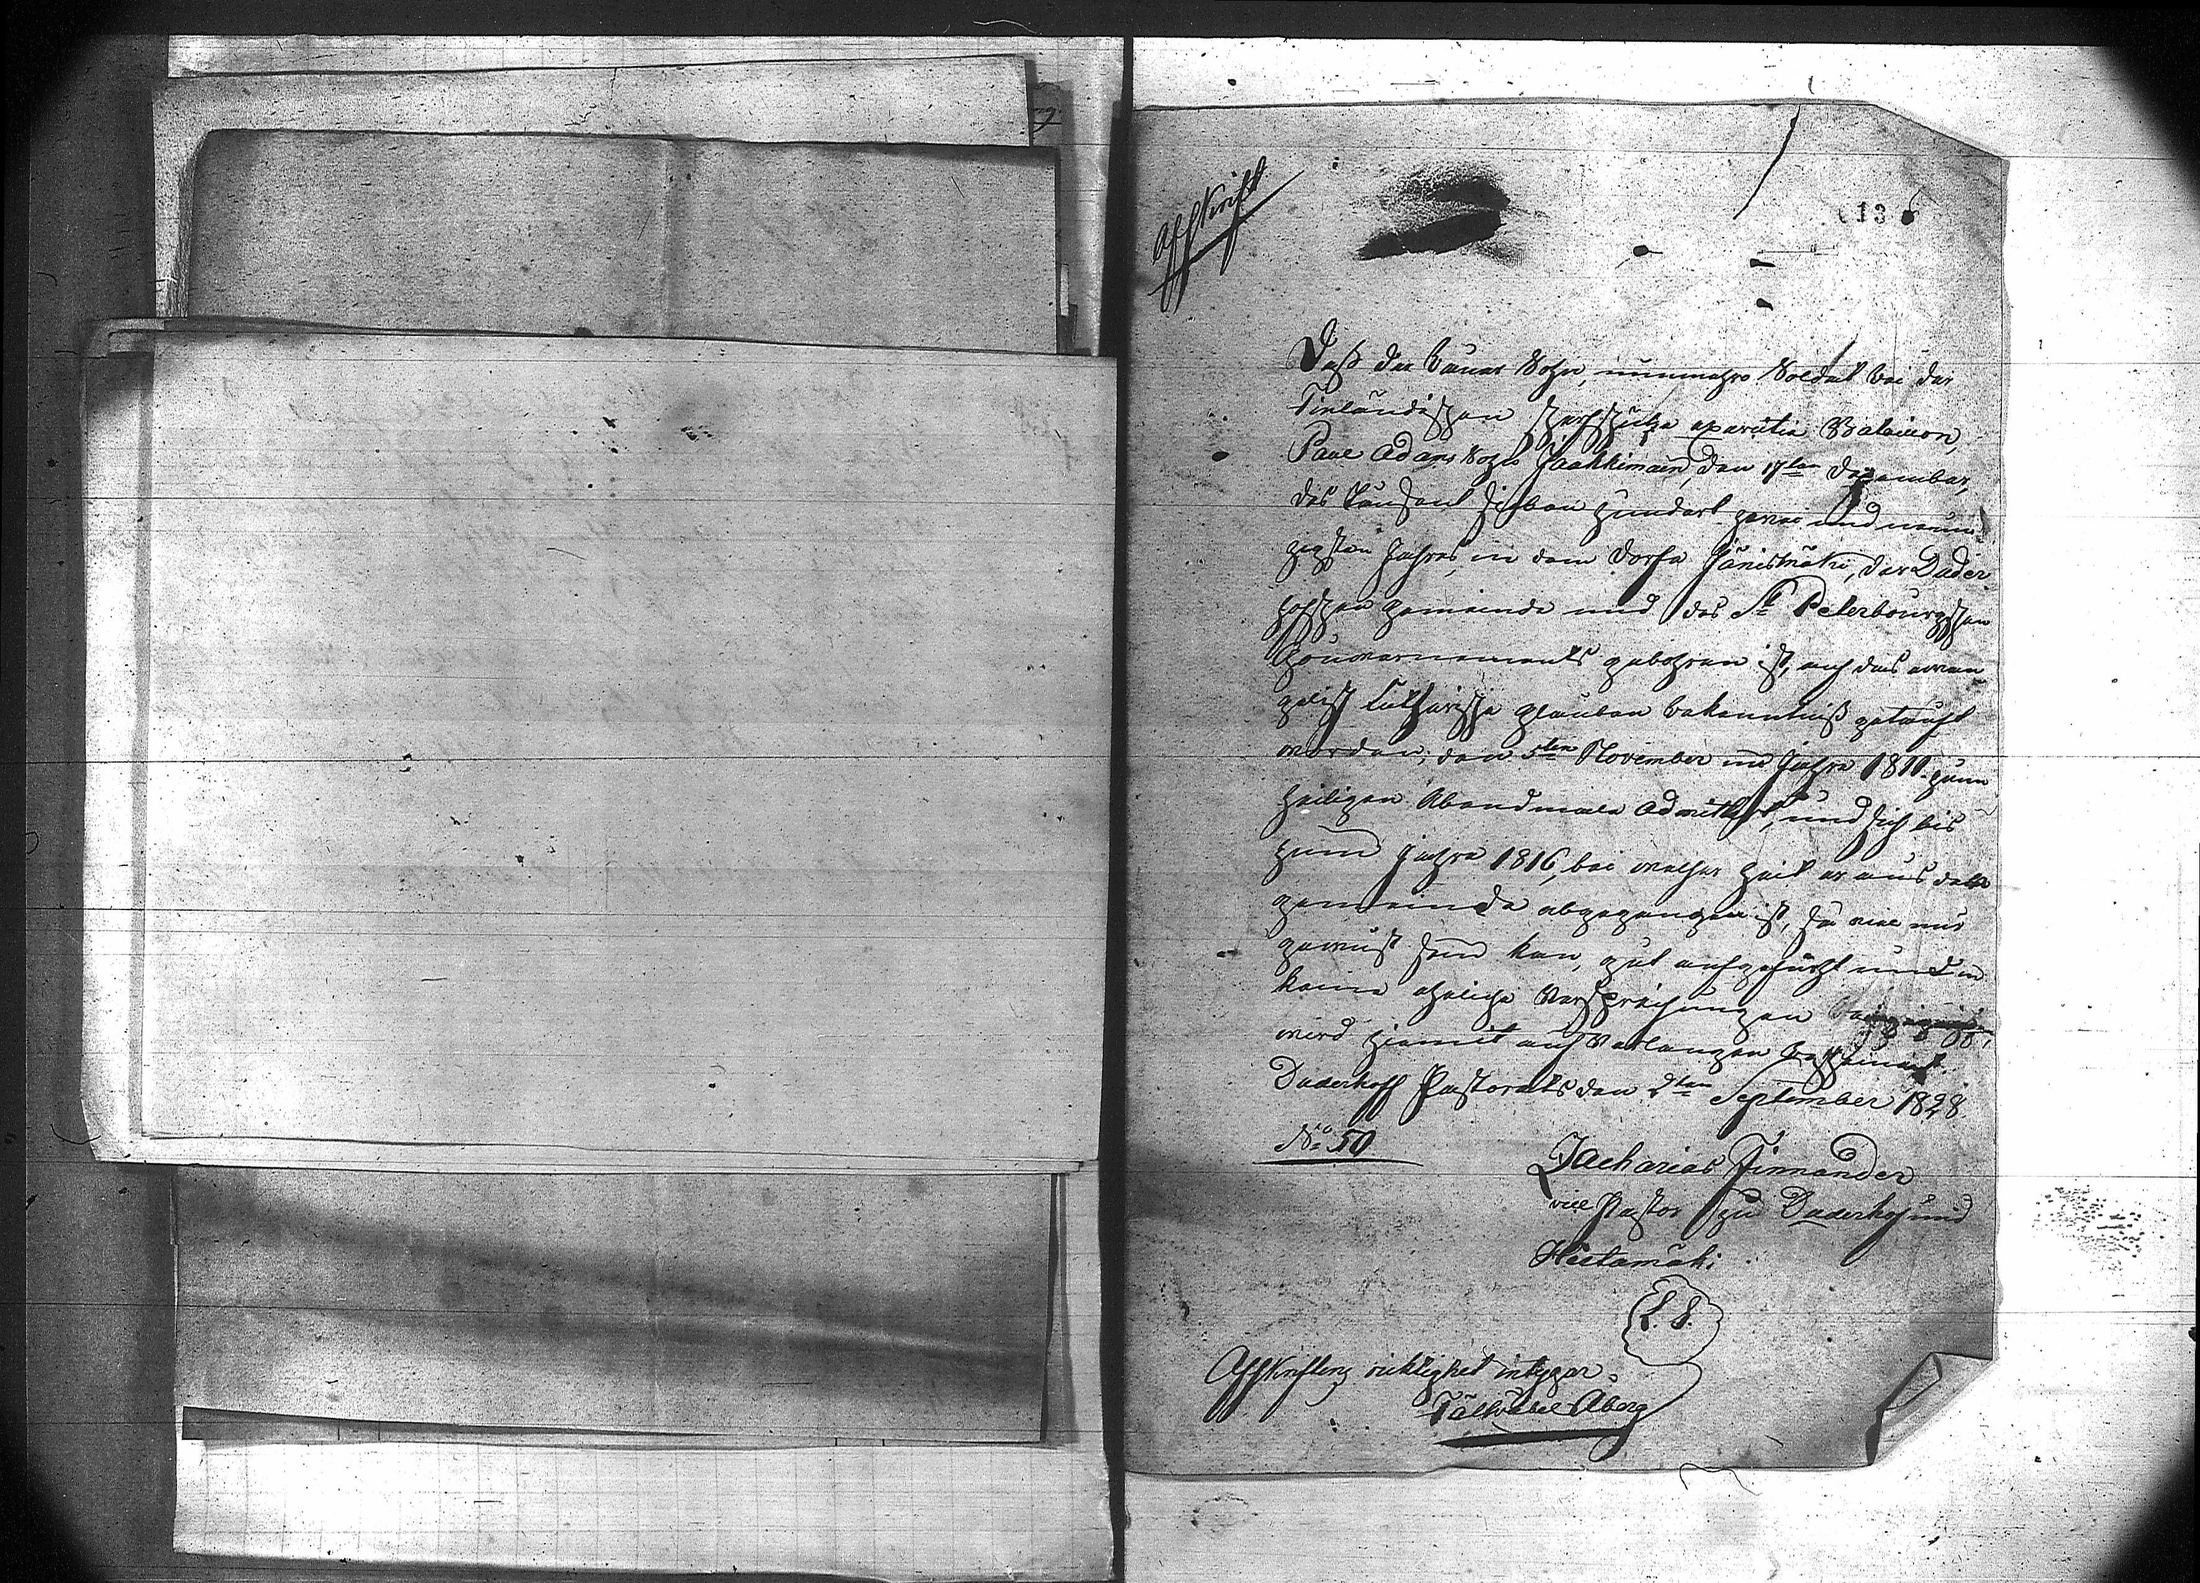 Affskrift
13
Daß der bauer Sohn, nunmehro Soldat bei der
Finländischen Scharfschütze Bataillon,
Paul Adams Sohn Jaakkimain, den 17ten Dezember,
des tausent sieben hundert zwei und neun
zigsten Jahres, in dem Dorfe Jänismäki, der Duder
hofschen gemeinde und des St Petersbourgschen
Gouvernements gebohren ist, auf das evan
gelisch Lutherische glauben bekenntniß getauft
worden, den 5ten November im Jahre 1811 zum
heiligen Abendmale admittirt, und sich bis
zum Jahre 1816, bei welcher Zeit er aus der
gemeinde abgegangen ist, so viel mir
gewust sein kan, gut aufgeführt und in
keine eheliche Versprechungen
wird hiemit auf Verlangen bescheiniget.
Duderhoff Pastorats den 2ten September 1828.
No 50
Zacharias Finnander
vice Pastor zu Duderhof und
Hietamäki
L. S.
Affskriftens riktighet intygar
Fältväbel Åberg